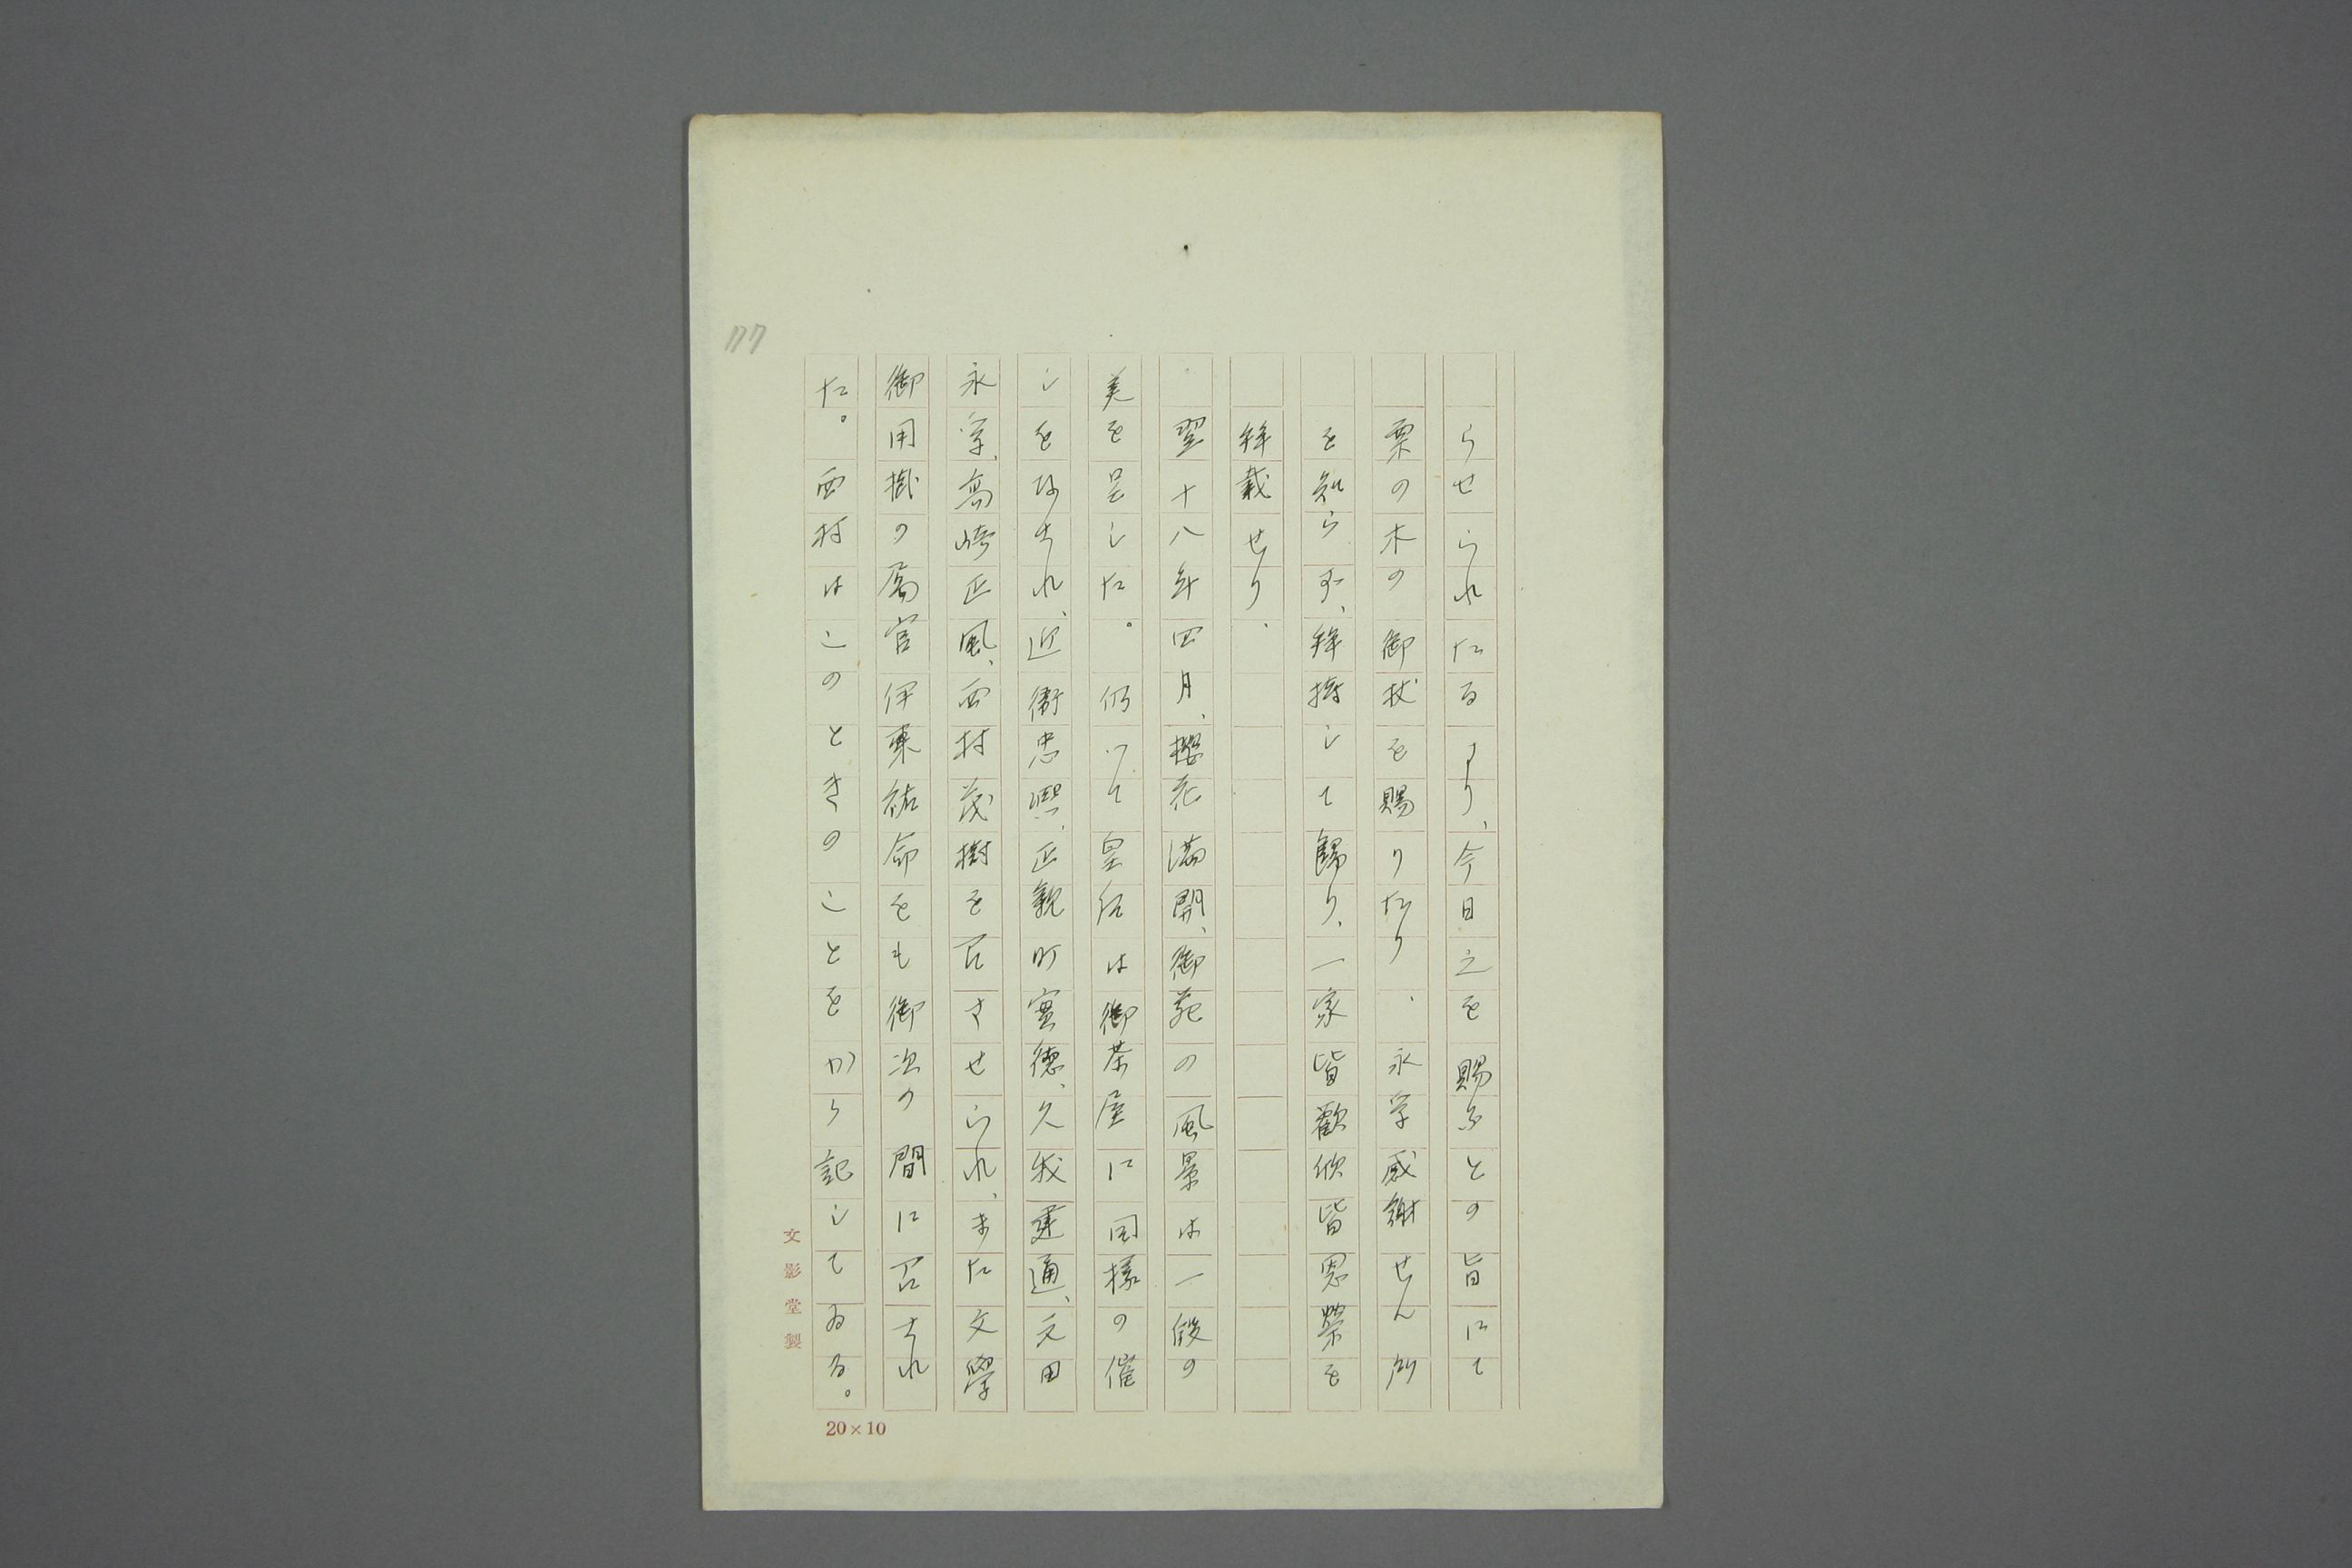 らせられたるより、今日之を賜ふとの旨にて
栗の木の御杖を賜りたり、永孚感謝せん所
を知らず、拜捧して歸り、一家皆歡欣皆恩榮を
拜戴せり、
翌十八年四月、櫻花滿開、御苑の風景は一段の
美を呈した。仍つて皇后は御茶屋に同樣の催
しをなされ、近衞忠熙、正親町實德、久我建通、元田
永孚、高崎正風、西村茂樹を召させられ、また文學
御用掛の屬官伊東祐命をも御次の間に召され
た。西村はこのときのことをかう記してゐる。
177
文影堂製
20×10